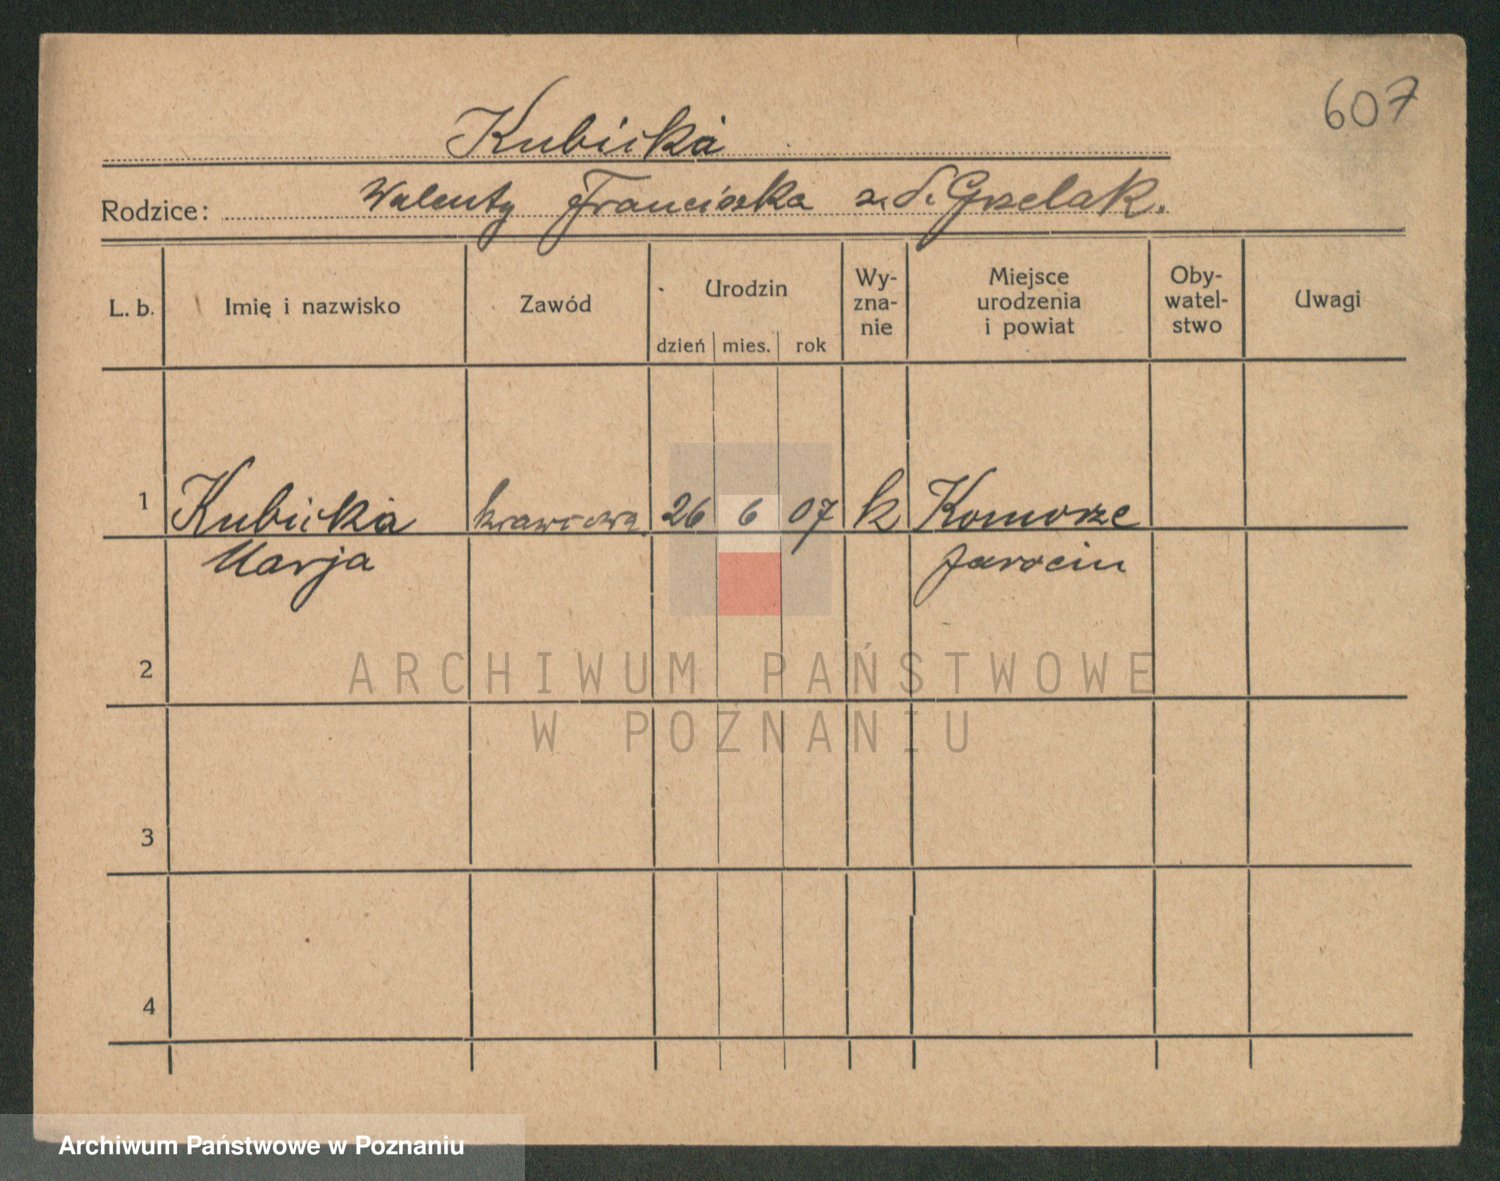 607
Kubicka
Rodzice: Walenty Franciszka z.d. Grzelak.
L. b. Imię i nazwisko Zawód Urodzin Wy-zna-nie Miejsce urodzenia i powiat Oby-watel-stwo Uwagi
dzień mies. rok
1 Kubicka krawcowa 26 6 07 k Komorze
Marja Jarocin
2
ARCHIWUM PAŃSTWOWE
W POZNANIU
3
4
Archiwum Państwowe w Poznaniu